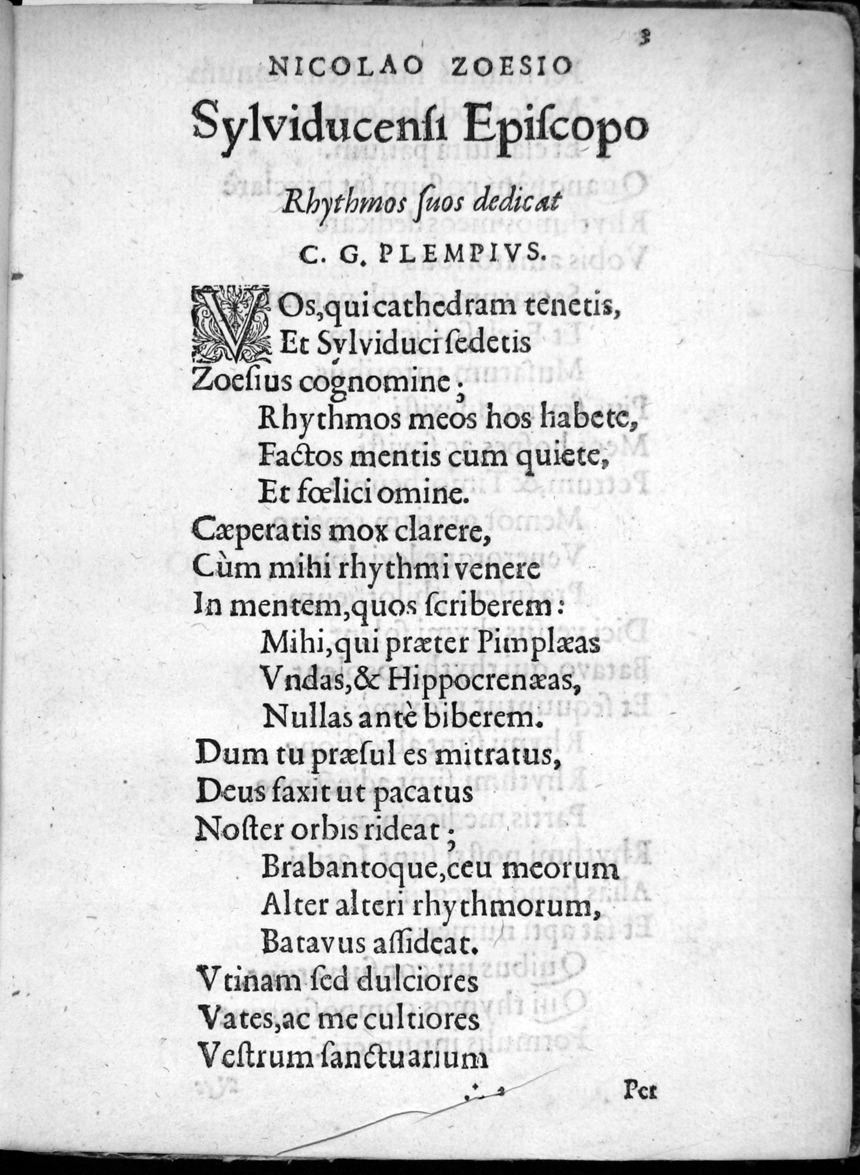 3
NICOLAO ZOESIO
Sylviducenſi Epiſcopo
Rhythmos ſuos dedicat
C. G. PLEMPIVS.
VOs, qui cathedram tenetis,
Et Sylviduci ſedetis
Zoeſius cognomine;
Rhythmos meos hos habete,
Factos mentis cum quiete,
Et fœlici omine.
Cæperatis mox clarere,
Cùm mihi rhythmi venere
In mentem, quos ſcriberem:
Mihi, qui præter Pimplæas
Vndas, & Hippocrenæas,
Nullas antè biberem.
Dum tu præſul es mitratus,
Deus faxit ut pacatus
Noſter orbis rideat;
Brabantoque, ceu meorum
Alter alteri rhythmorum,
Batavus aſſideat.
Vtinam ſed dulciores
Vates, ac me cultiores
Veſtrum ſanctuarium
Pet